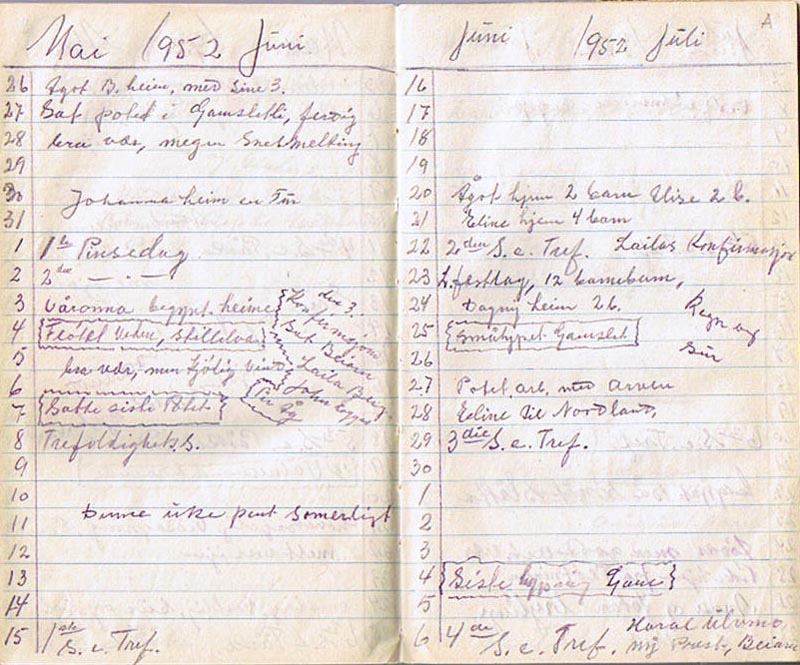 Mai 1952 Juni
26 Ågot B. heim, med sine 3.
27 Sat potet i Gamsletti, ferdig
28 bra vær, megen Snesmelting
29
30 Johanna heim en Tur
31
1 1ste Pinsedag
2 2den — . —
3 Våronna begynt heime
4 Fløtet Veden, Stillelva
5 bra vær, men kjølig vind
6
7 Satte siste Potet
8 Trefoldighets.S.
9
10
11 Denne uke pent Somerligt
12
13
14
15 1ste S. e. Tref.
den 3.
Konfirmasjon
Beiarn
Laila
John
Juni 1952 Juli
A
16
17
18
19
20 Ågot hjem 2 barn Elise 2 b.
21 Eline hjem 4 barn
22 2den S. e. Tref. Lailas Konfirmasjon
23 2. festdag, 12 barnebarn,
24 Dagny heim 2 b.
25 Småhyppet Gamslet
26
Regn og
Sur
27 Potet. arb. med arven
28 Eeline til Nordland,
29 3die S. e. Tref.
30
1
2
3
4 Siste hypping Gams
5
6 4de S. e. Tref.
ny Prest, Beiarn